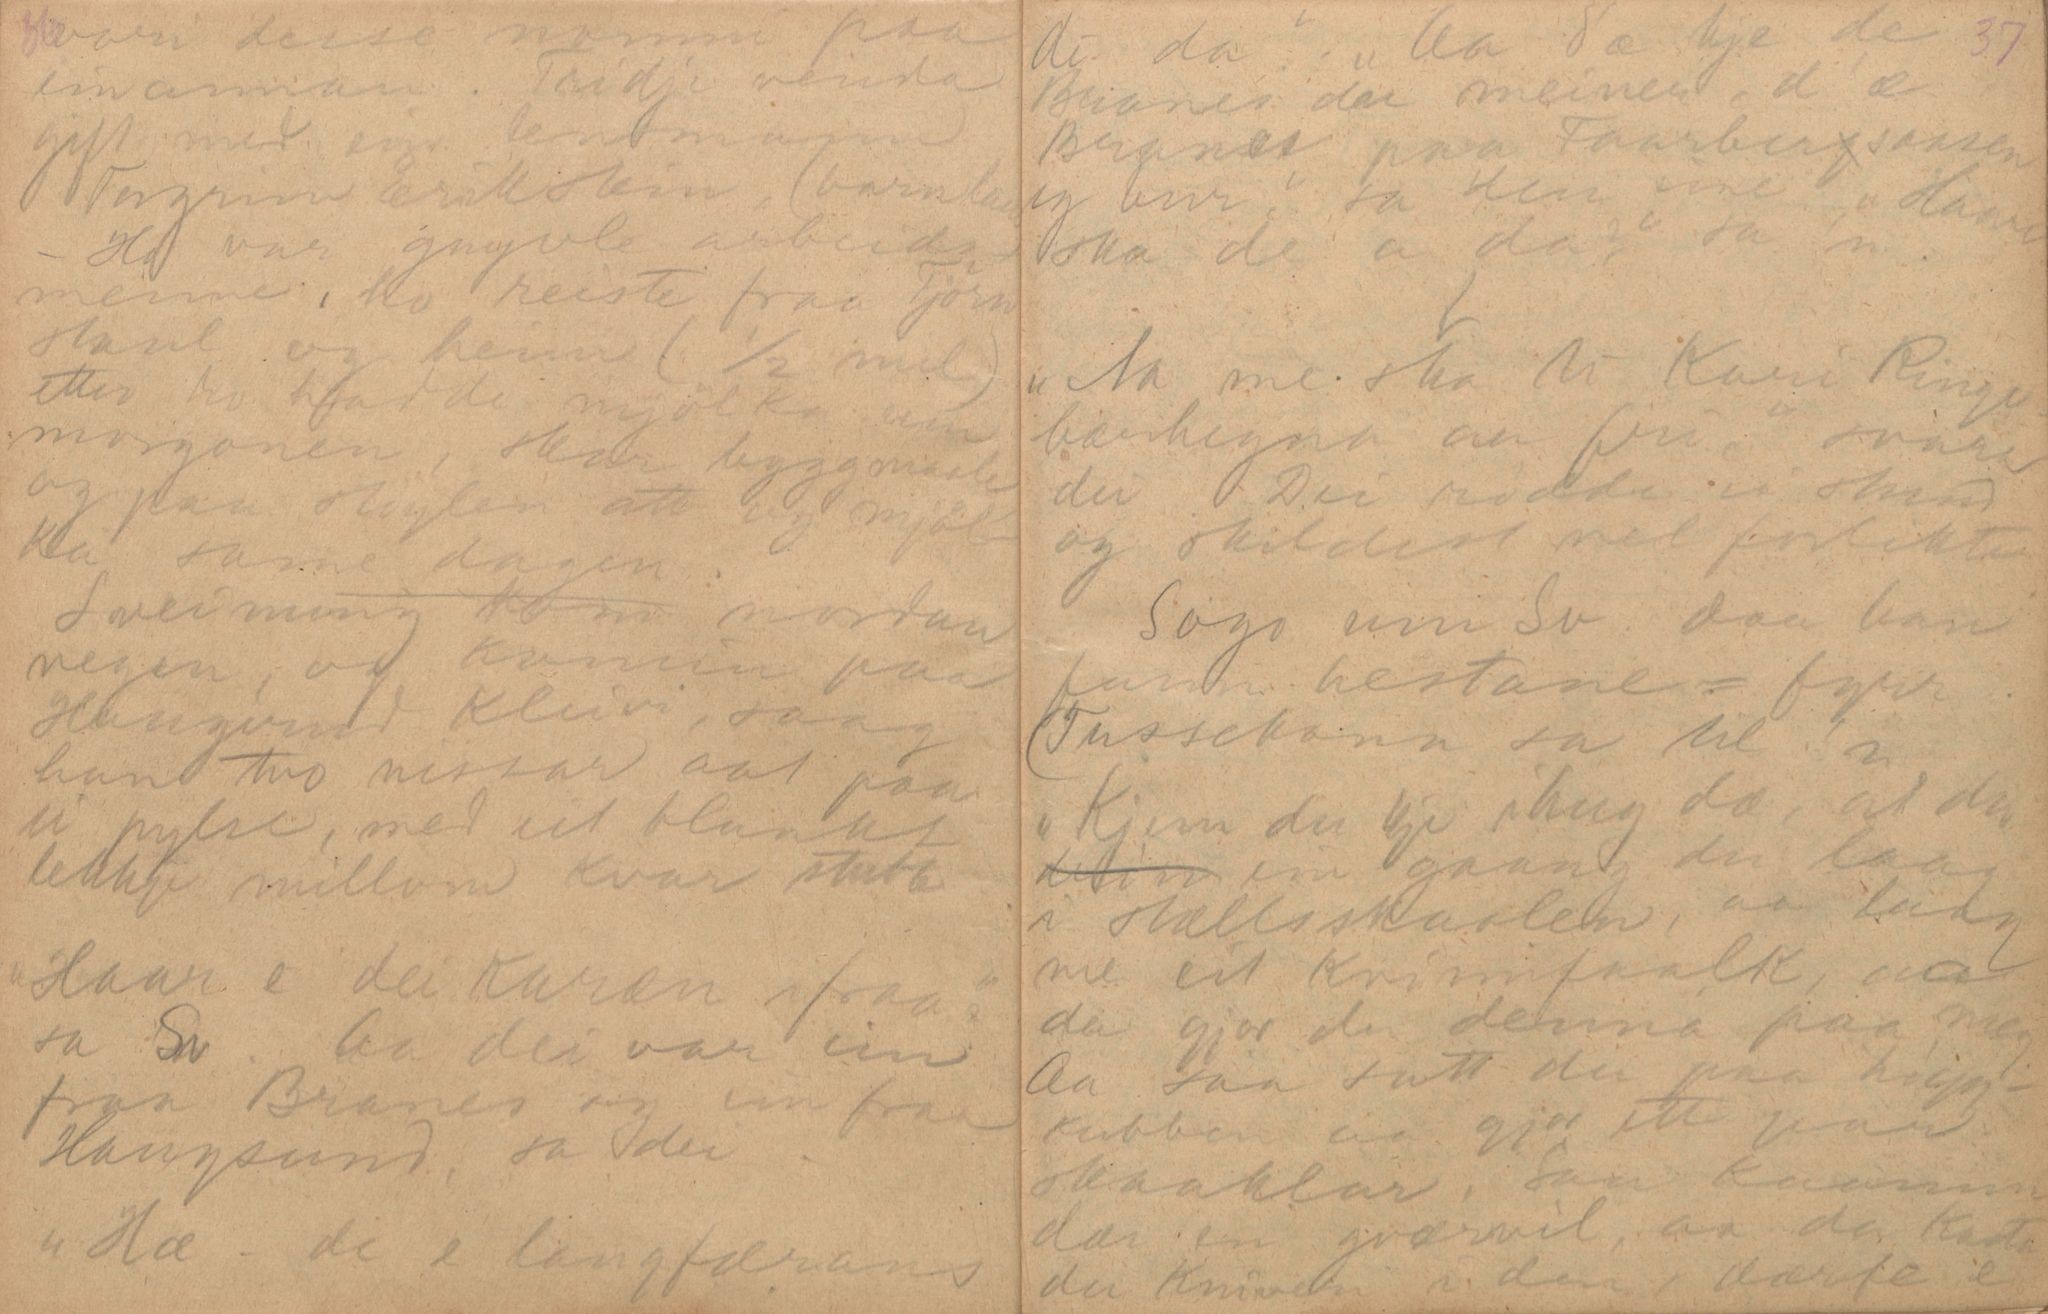 36
vori desse nommi paa
einannan. Tridje venda
gift med ein lensmann
Torgrim Erikstein, (barnlau
- Ho var gnyvle arbeids
menne, ho reiste fraa Tjörn
staul og heim (1/2 mil)
etter ho hadde mjölka um
morgonen, skar byggmaale
og paa stiylen att og mjöl-
ka same dagen.
Sveinung kom nordan
vegen, og komin paa
Haugsund Kleivi, saag
han two nissar aat paa
ei pylse, med eit blankt
lekkje millom kvar stubb
"Haar e dei karæn ifraa"?
sa Sv. Aa dei var ein
fraa Branes og ein fraa
Haugsund, sa dei.
"Hæ - de e langfærans
37
di da". "Aa d'æ kje de
Branes dei meiner, d'æ
Branes paa Faarbergsaasen
eg bur", sa den eine. "Haare
ska de a da?" sa'n.
"Aa me ska ti Kari Ringe
bærhegna aa fri", svara
dei. Dei rödde ei stund
og skildest vel forlikte
Sogo um Sv. daa han
fann hestane - fyrr
(Tussekona sa til 'n
"Kjem du kje ihug dæ, at da
ein gaang du laag
i stællsskaalen, aa laag
me eit krimfaalk, aa
da gjor du denna paa meg
Aa saa satt du paa hogg-
kubben aa gjor ett par
skaaklar, Saa kaamm
dær en gværvil, aa da kasta
du kniven i den, dærfe e